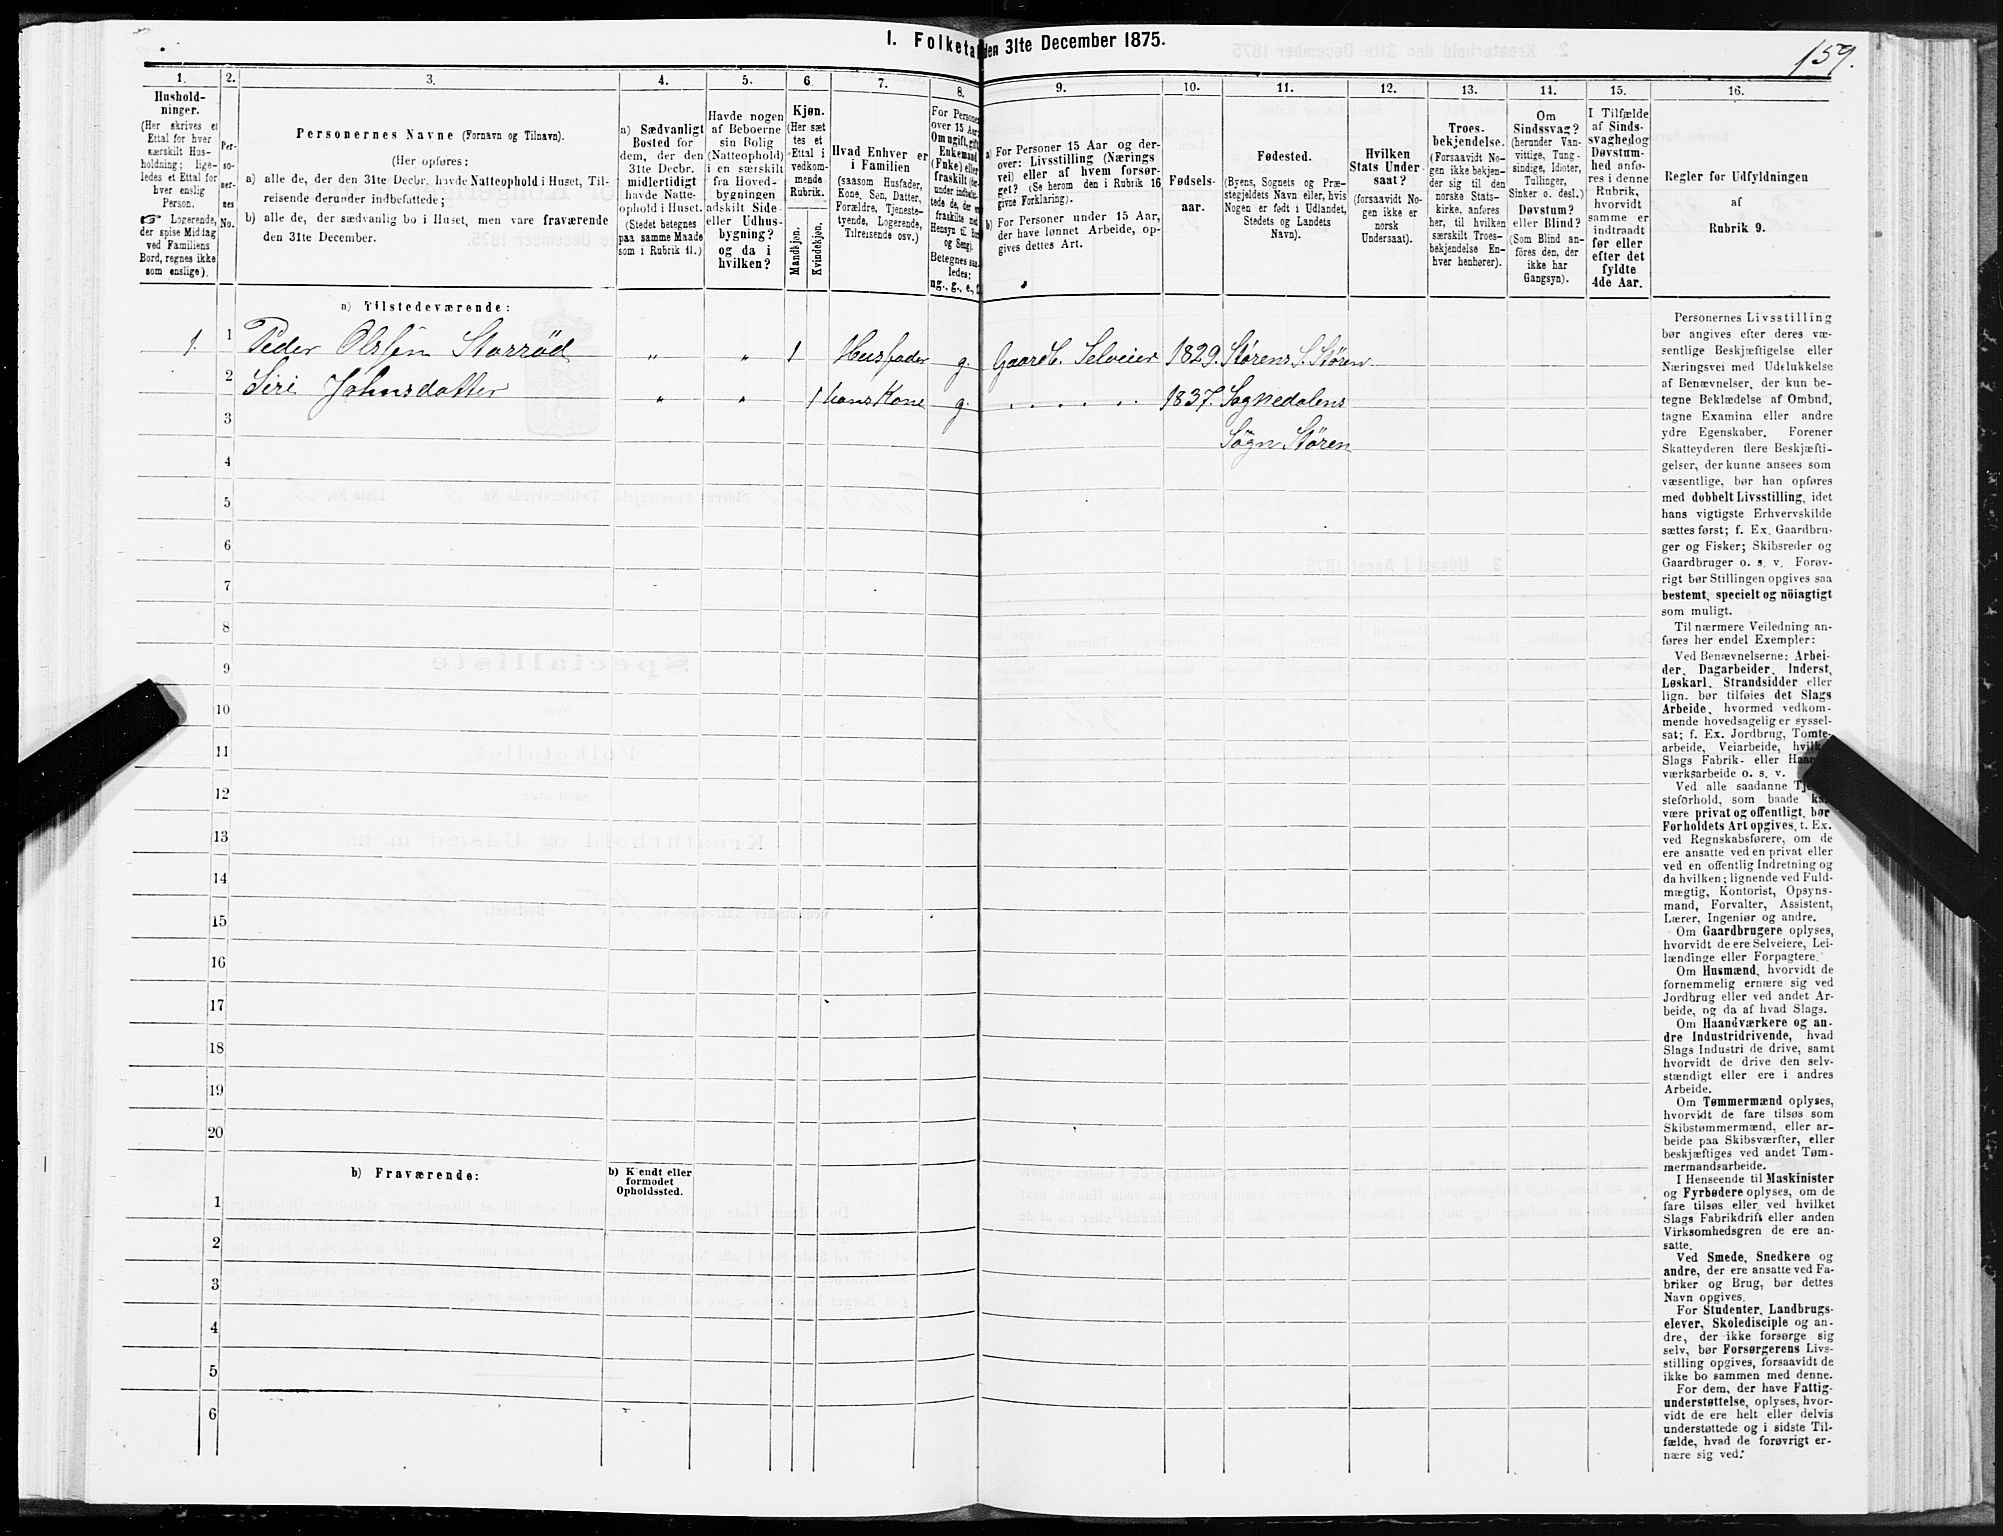 I. Folketal den 31te December 1875.
159.
1. 2. 3. 4. 5. 6. 7. 8. 9. 10. 11. 12. 13. 14. 15. 16.
Hushold-
ninger.
(Her skrives et
Ettal for hver
særskilt Hus-
holdning; lige-
ledes et Ettal for
hver enslig
Person.
☞ Logerende,
der spise Middag
ved Familiens
Bord, regnes ikke
som enslige).
Per-
so-
ner-
nes
No.
Personernes Navne (Fornavn og Tilnavn).
(Her opføres:
a) alle de, der den 31te Decbr. havde Natteophold i Huset, Til-
reisende derunder indbefattede;
b) alle de, der sædvanlig bo i Huset, men vare fraværende
den 31te December.
a) Sædvanligt
Bosted for
dem, der den
31te Decbr.
midlertidigt
havde Natte-
ophold i Huset.
(Stedet betegnes
paa samme Maade
som i Rubrik 11.)
Havde nogen
af Beboerne
sin Bolig
(Natteophold)
i en særskilt
fra Hoved-
bygningen
adskilt Side-
eller Udhus-
bygning?
og da i
hvilken?
Kjøn.
(Her sæt-
tes et
Ettal i
vedkom-
mende
Rubrik.
Mandkjøn.
Kvindekjøn.
Hvad Enhver er
i Familien
(saasom Husfader,
Kone, Søn, Datter,
Forældre, Tjeneste-
tyende, Logerende,
Tilreisende osv.)
For Personer
over 15 Aar:
Om ugift, gift,
Enkemand
(Enke) eller
fraskilt (der-
under indbefat-
tede de, der ere
fraskilte med
Hensyn til Bord
og Seng).
Betegnes saa-
ledes:
ug., g., e., f.
a) For Personer 15 Aar og der-
over: Livsstilling (Nærings
vei) eller af hvem forsør-
get? (Se herom den i Rubrik 16
givne Forklaring).
b) For Personer under 15 Aar,
der have lønnet Arbeide, op-
gives dettes Art.
Fødsels-
aar.
Fødested.
(Byens, Sognets og Præ-
stegjeldets Navn eller, hvis
Nogen er født i Udlandet,
Stedets og Landets
Navn).
Hvilken
Stats Under-
saat?
(forsaavidt No-
gen ikke er
norsk
Undersaat).
Troes-
bekjendelse.
(Forsaavidt No-
gen ikke bekjen-
der sig til den
norske Stats-
kirke, anføres
her, til hvilken
særskilt Troes-
bekjendelse En-
hver henhører).
Om
Sindssvag?
(herunder Van-
vittige, Tung-
sindige, Idioter,
Tullinger,
Sinker o. desl.)
Døvstum?
eller Blind?
(Som Blind an-
føres den, der
ikke har
Gangsyn).
I Tilfælde
af Sinds-
svaghed og
Døvstum-
hed anfø-
res i denne
Rubrik,
hvorvidt
samme er
indtraadt
før eller
efter det
fyldte
4de Aar.
Regler for Udfyldningen
af
Rubrik 9.
a) Tilstedeværende:
1. 1 Peder Olsen Storrød „ „ 1 Husfader g. Gaardb. Selveier 1829. Størens S. Støren
2 Siri Johnsdatter „ „ 1 hans Kone g. 1837. Sognedalens
3 Sogn Støren
4
5
6
7
8
9
10
11
12
13
14
15
16
17
18
19
20
b) Fraværende:
b) Kjendt eller
formodet
Opholdssted.
1
2
3
4
5
6
Personernes Livsstilling
bør angives efter deres væ-
sentlige Beskjæftigelse eller
Næringsvei med Udelukkelse
af Benævnelser, der kun be-
tegne Beklædelse af Ombud,
tagne Examina eller andre
ydre Egenskaber. Forener
Skatteyderen flere Beskjæfti-
gelser, der kunne ansees som
væsentlige, bør han opføres
med dobbelt Livsstilling, idet
hans vigtigste Erhvervskilde
sættes først; f. Ex. Gaardbru-
ger og Fisker; Skibsreder og
Gaardbruger o. s. v. Forøv-
rigt bør Stillingen opgives saa
bestemt, specielt og nöiagtigt
som muligt.
Til nærmere Veiledning an-
føres her endel Exempler:
Ved Benævnelserne: Arbei-
der, Dagarbeider, Inderst,
Løskarl, Strandsidder eller
lign. bør tilføies det Slags
Arbeide, hvormed vedkom-
mende hovedsagelig er syssel-
sat; f. Ex. Jordbrug, Tomte-
arbeide, Veiarbeide, hvilket
Slags Fabrik- eller Haand-
værksarbeide o. s. v.
Ved alle saadanne Tjene-
steforhold, som baade kan
være privat og offentligt, bør
Forholdets Art opgives, t. Ex.
ved Regnskabsførere, om de
ere ansatte ved en privat eller
ved en offentlig Indretning og
da hvilken; lignende ved Fuld-
mægtig, Kontorist, Opsyns-
mand, Forvalter, Assistent,
Lærer, Ingeniør og andre.
Om Gaardbrugere oplyses,
hvorvidt de ere Selveiere, Lei-
lændinge eller Forpagtere.
Om Husmænd, hvorvidt de
fornemmelig ernære sig ved
Jordbrug eller ved andet Ar-
beide, og da af hvad Slags.
Om Haandværkere og an-
dre Industridrivende, hvad
Slags Industri de drive, samt
hvorvidt de drive den selv-
stændigt eller ere i andres
Arbeide.
Om Tømmermænd oplyses,
hvorvidt de fare tilsøs som
Skibstømmermænd, eller ar-
beide paa Skibsværfter, eller
beskjæftiges ved andet Tøm-
mermandsarbeide.
I Henseende til Maskinister
og Fyrbødere oplyses, om de
fare tilsøs eller ved hvilket
Slags Fabrikdrift eller anden
Virksomhedsgren de ere an-
satte.
Ved Smede, Snedkere og
andre, der ere ansatte ved Fa-
briker og Brug, bør dettes
Navn opgives.
For Studenter, Landbrugs-
elever, Skoledisciple og an-
dre, der ikke forsørge sig
selv, bør Forsørgerens Livs-
stilling opgives, forsaavidt de
ikke bo sammen med denne.
For dem, der have Fattig-
understøttelse, oplyses, hvor-
vidt de ere helt eller delvis
understøttede og i sidste Til-
fælde, hvad de forøvrigt er-
nære sig ved.